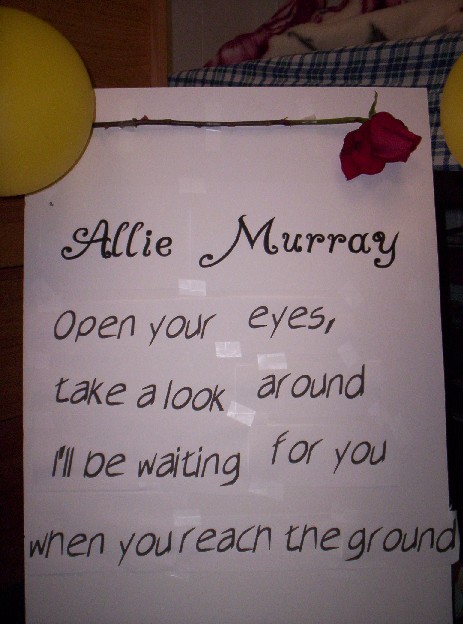 Allie Murray
Open your eyes,
take a look around
I'll be waiting for you
when you reach the ground